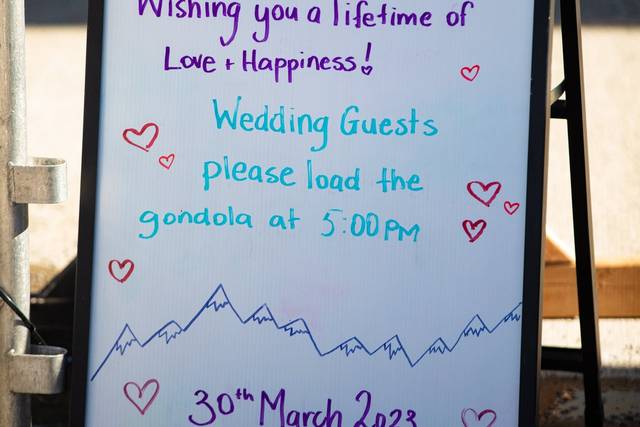 Wishing you a lifetime of
Love + Happiness!
Wedding Guests
please load the
gondola at 5:00PM
30th March 2023